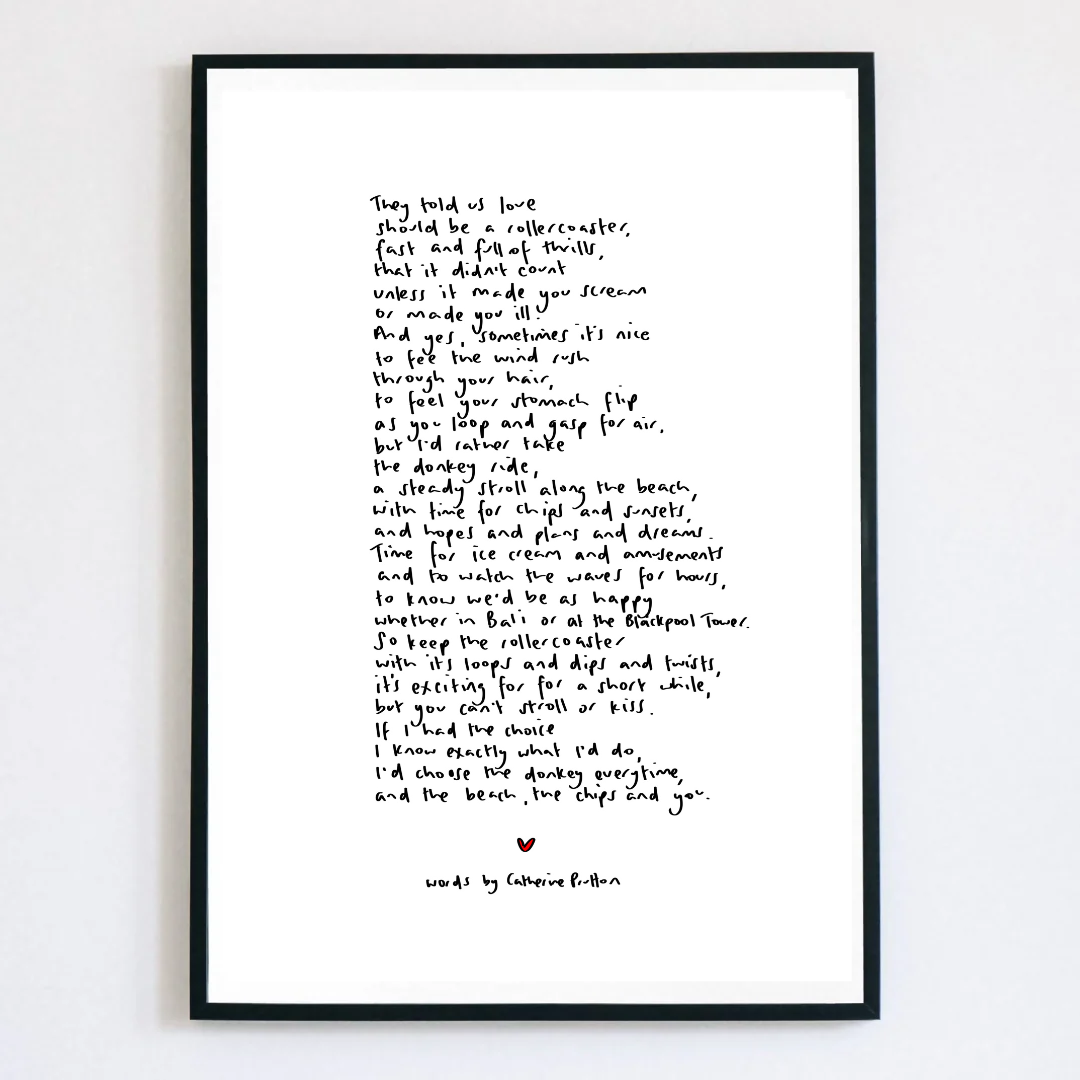 They told us love
should be a rollercoaster,
fast and full of thrills,
that it didn't count
unless it made you scream
or made you ill.
And yes, sometimes it's nice
to fee the wind rush
through your hair,
to feel your stomach flip
as you loop and gasp for air,
but I'd rather take
the donkey ride,
a steady stroll along the beach,
with time for chips and sunsets,
and hopes and plans and dreams.
Time for ice cream and amusements
and to watch the waves for hours,
to know we'd be as happy
whether in Bali or at the Blackpool Tower.
So keep the rollercoaster
with it's loops and dips and twists,
it's exciting for for a short while,
but you can't stroll or kiss.
If I had the choice
I know exactly what I'd do,
I'd choose the donkey everytime,
and the beach, the chips and you.
words by Catherine Prutton